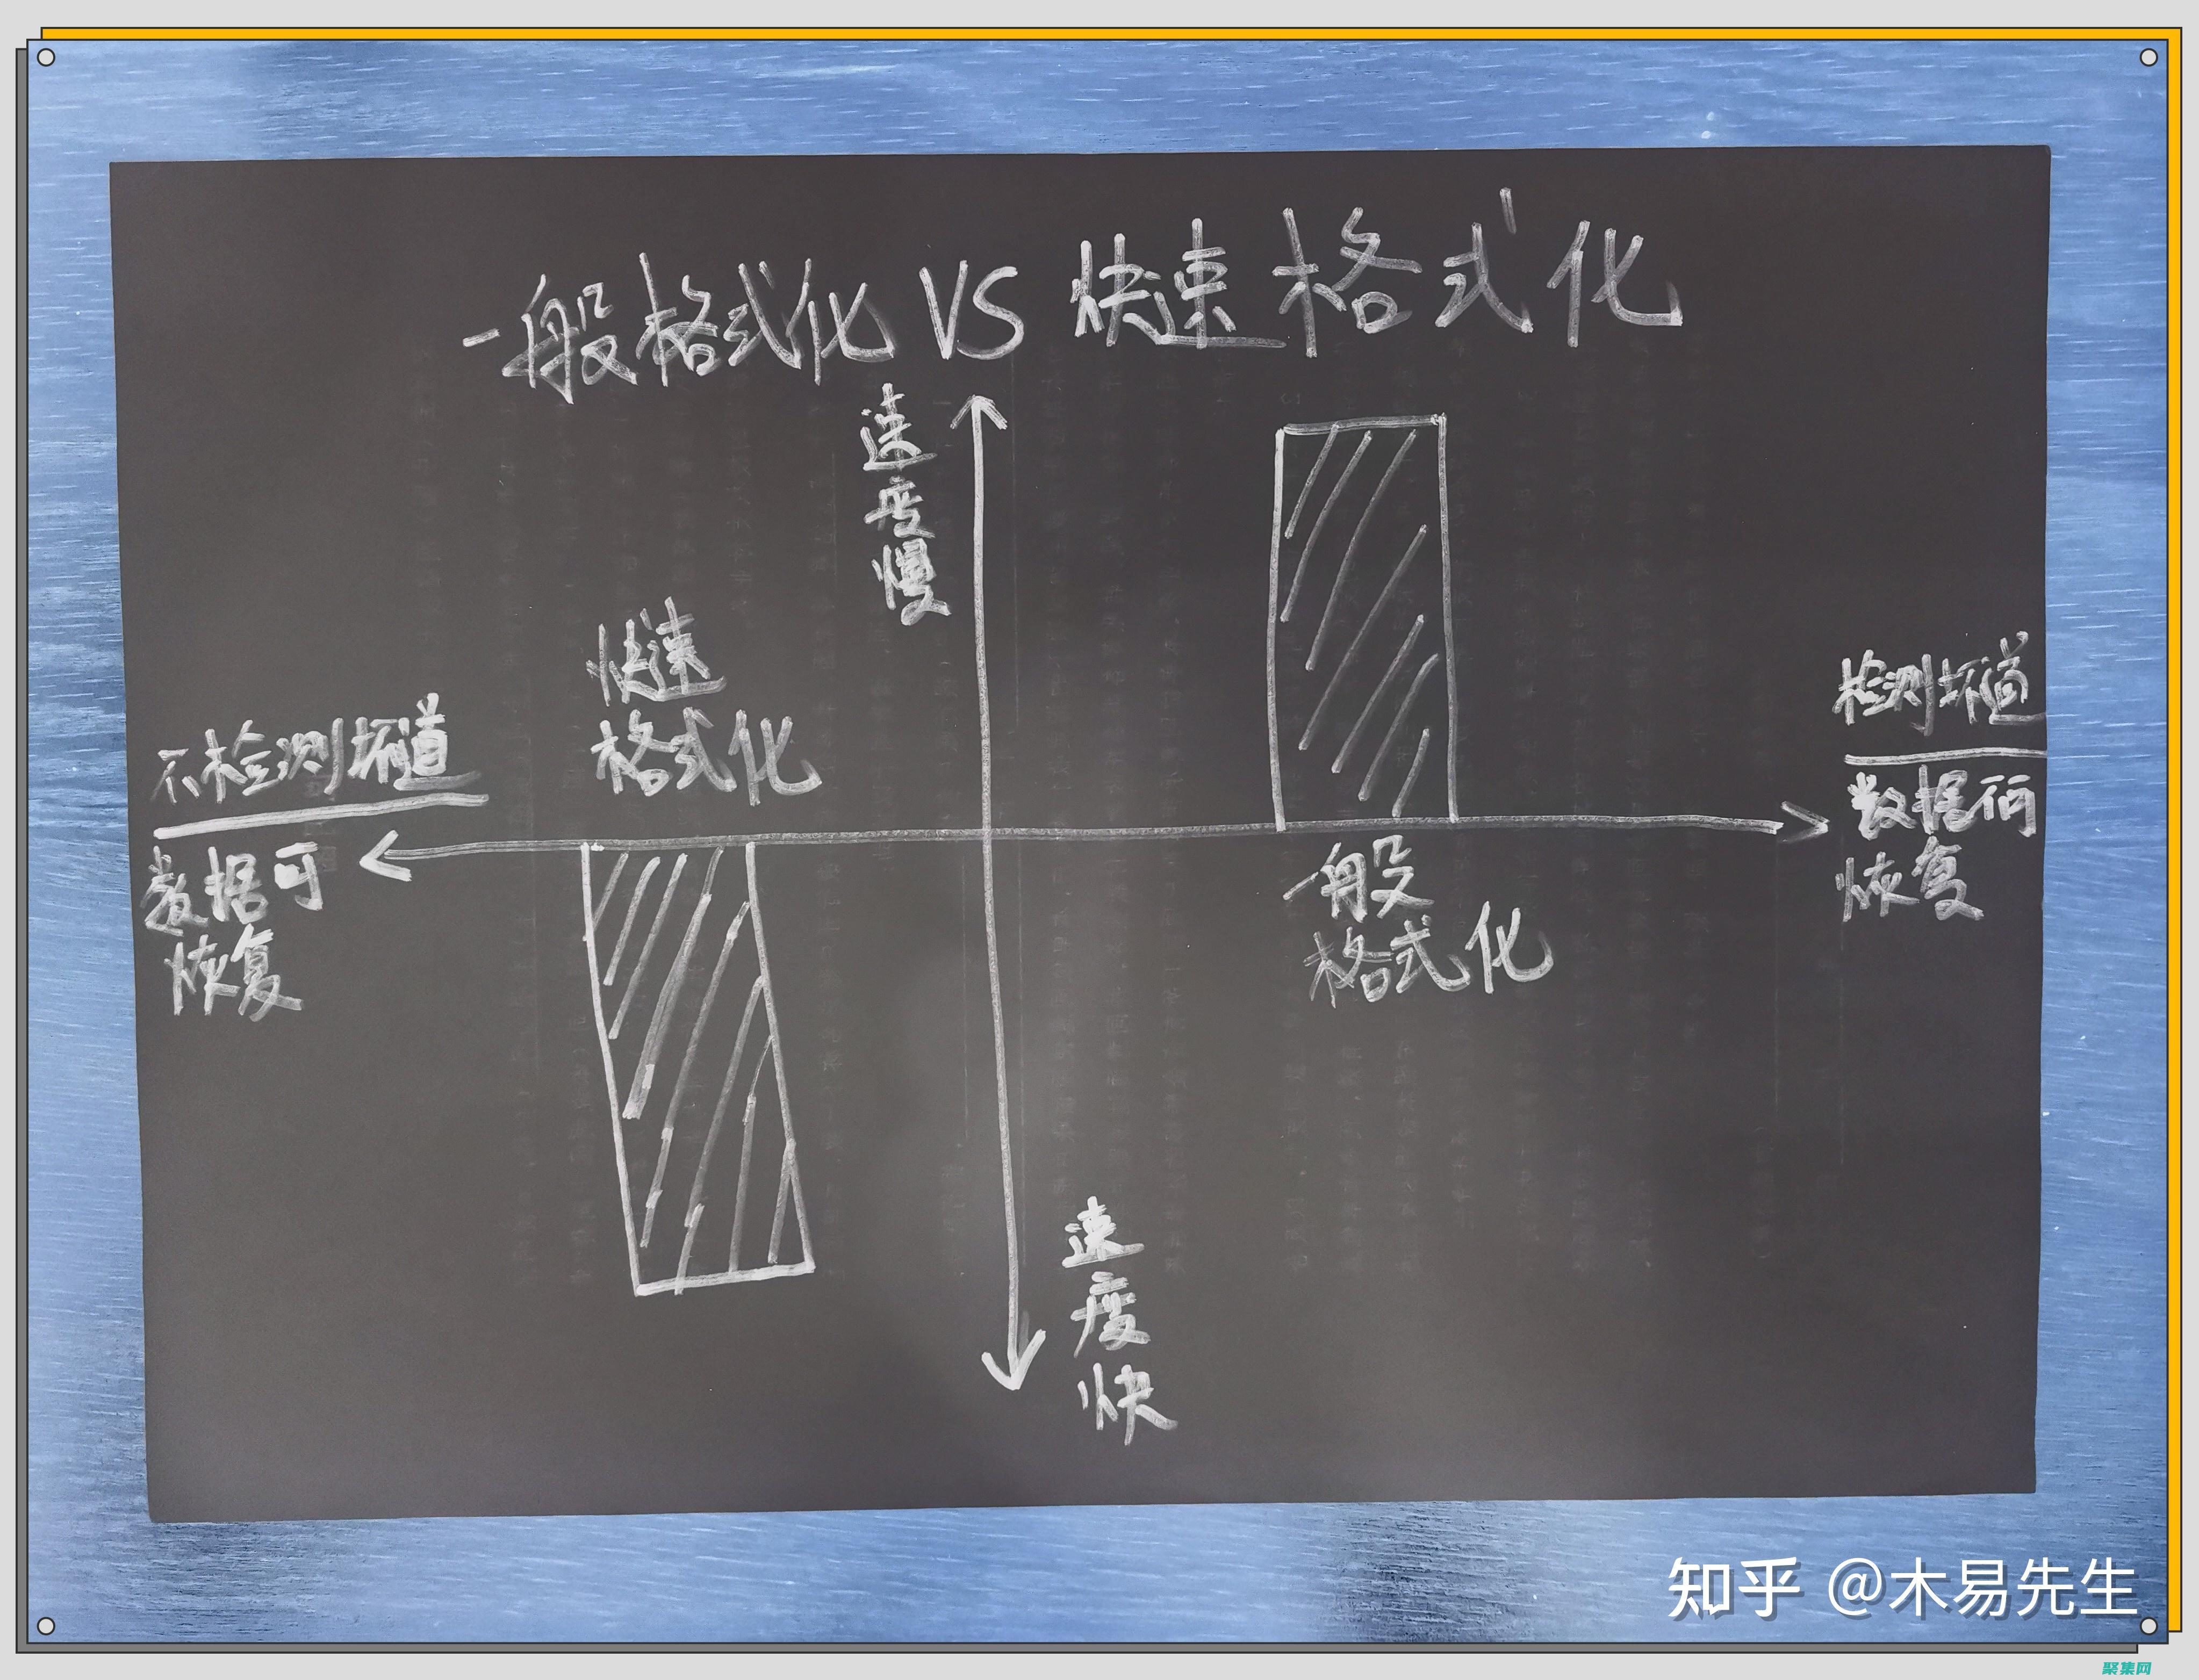 一般格式化 VS 快速格式化
速度慢
快速
格式化
不检测坏道
数据可
恢复
检测坏道
恢复
一般
格式化
速度快
知乎 @木易先生
聚集网